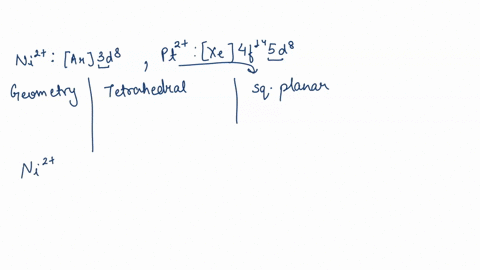 Ni²⁺ : [Ar] 3d⁸ , Pt²⁺ : [Xe] 4f¹⁴ 5d⁸
Geometry Tetrahedral Sq. planar
Ni²⁺